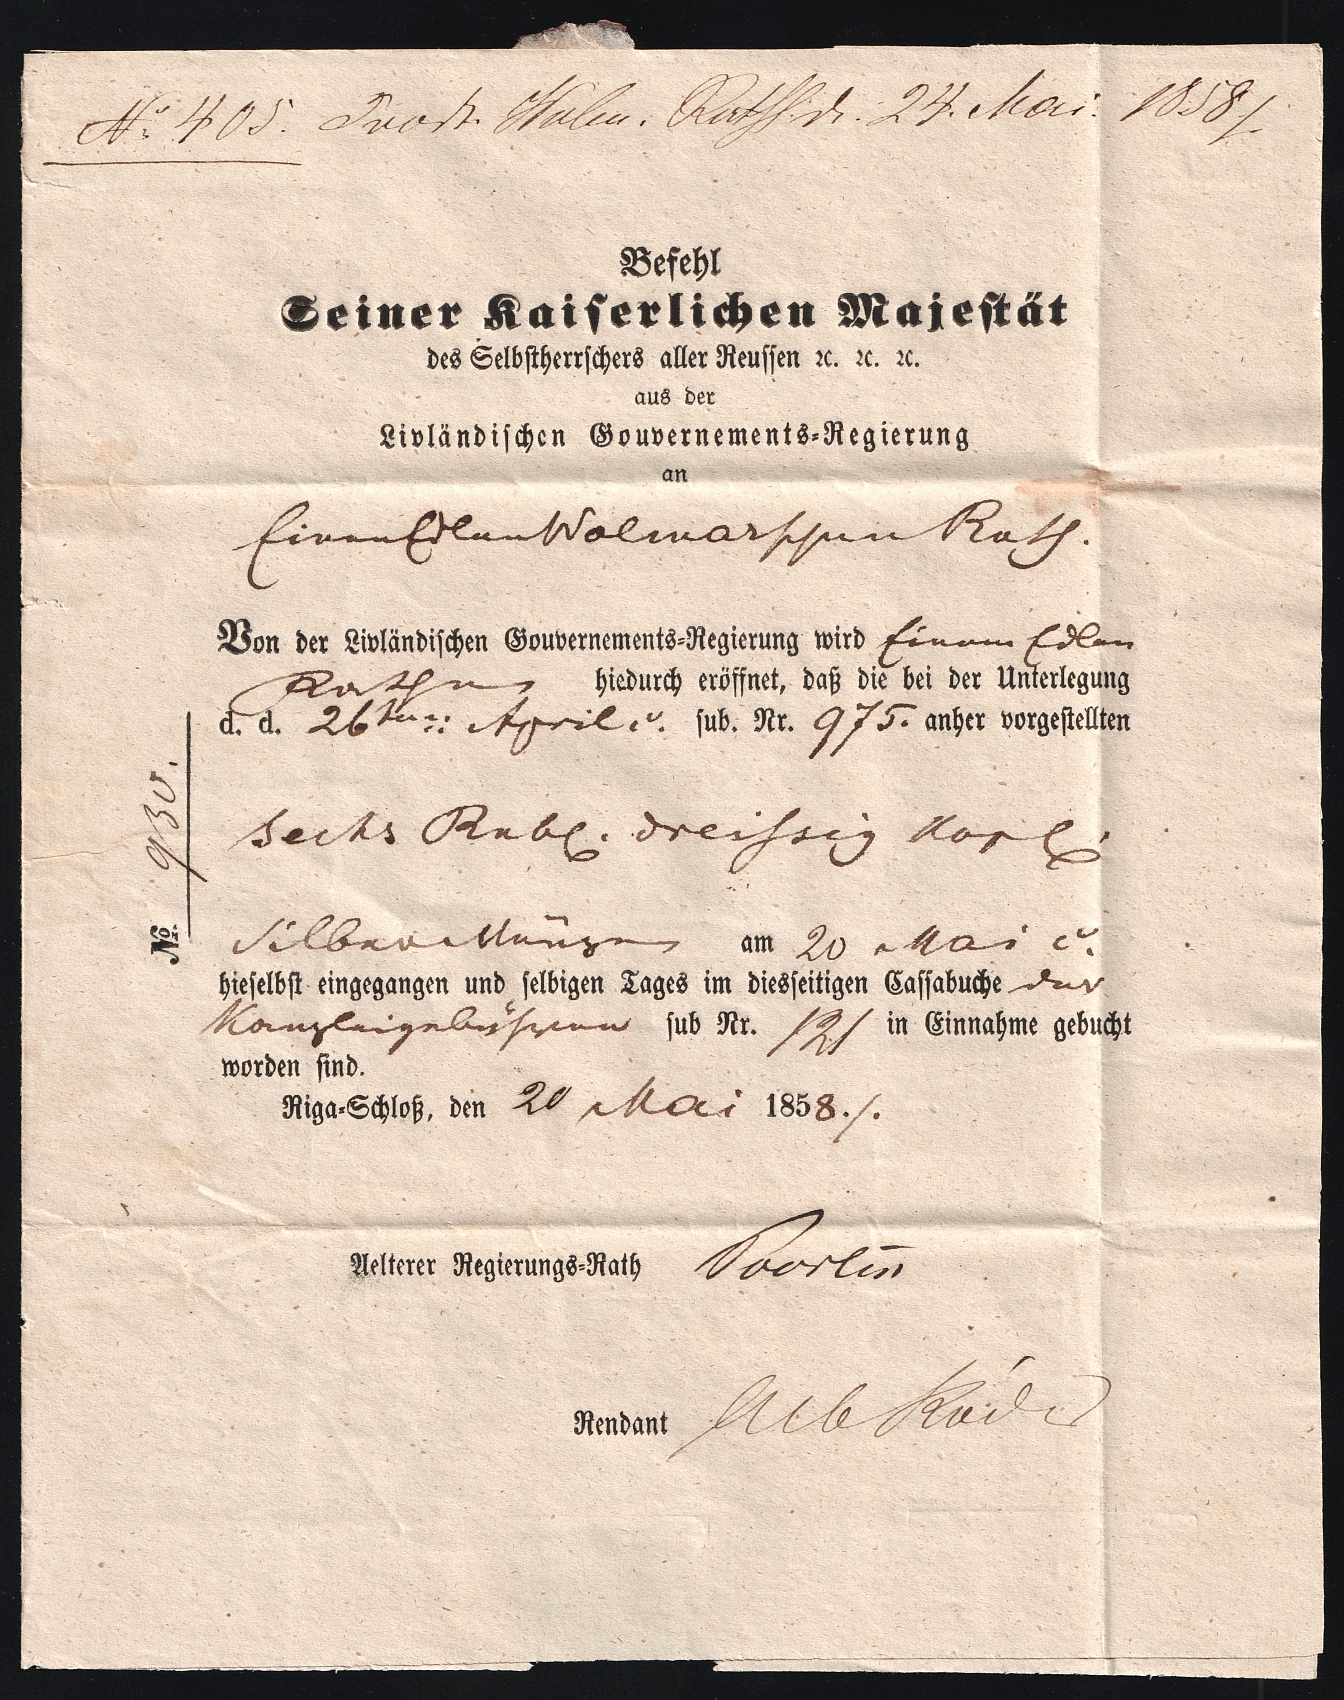 No. 405. Prodt. Wolm. Rath d. 24. Mai. 1858/.
Befehl
Seiner Kaiserlichen Majestät
des Selbstherrschers aller Reussen ꝛc. ꝛc. ꝛc.
aus der
Livländischen Gouvernements-Regierung
an
Einen Edlen Wolmarschen Rath.
Von der Livländischen Gouvernements-Regierung wird Einem Edlen
Rathe hiedurch eröffnet, daß die bei der Unterlegung
d. d. 26ten April c. sub. Nr. 975. anher vorgestellten
sechs Rubl. dreissig Kop.
Silber Münze am 20 Mai c.
hieselbst eingegangen und selbigen Tages im diesseitigen Cassabuche der
Kanzleigebühren sub Nr. 121 in Einnahme gebucht
worden sind.
Riga-Schloß, den 20 Mai 1858./.
No. 930.
Aelterer Regierungs-Rath
Rendant